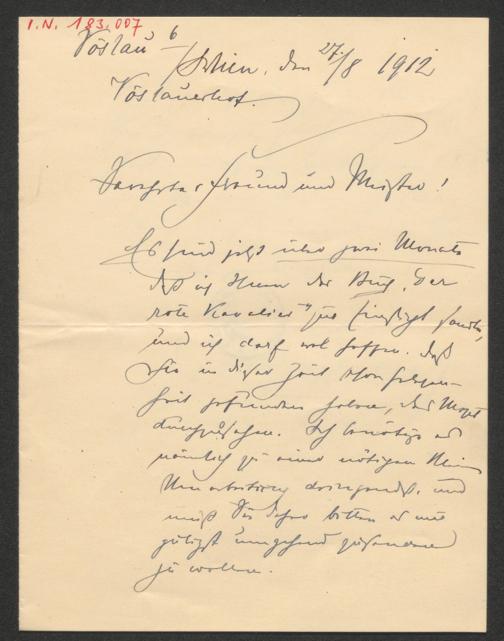 I.N. 183.007
Vöslau b/Wien, den 27./8 1912
Vöslauerhof.
Verehrter Freund und Meister!
Es sind jetzt über zwei Monate
daß ich Ihnen das Buch „Der
rote Kavalier" zur Einsicht sandte,
und ich darf wol hoffen, daß
Sie in dieser Zeit schon Gelegen-
heit gefunden haben, das Mspt
durchzusehen. Ich benötige es
nämlich zu einer nötigen kleinen
Umarbeitung dringendst, und
muß Sie daher bitten es mir
gütigst umgehend zusenden
zu wollen.